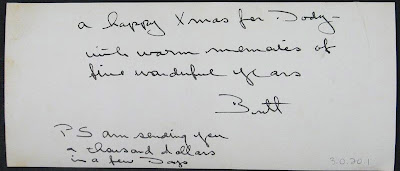 a happy Xmas for Jody—
with warm memories of
five wonderful years
Brett
PS am sending you
a thousand dollars
in a few Days
30.20.1